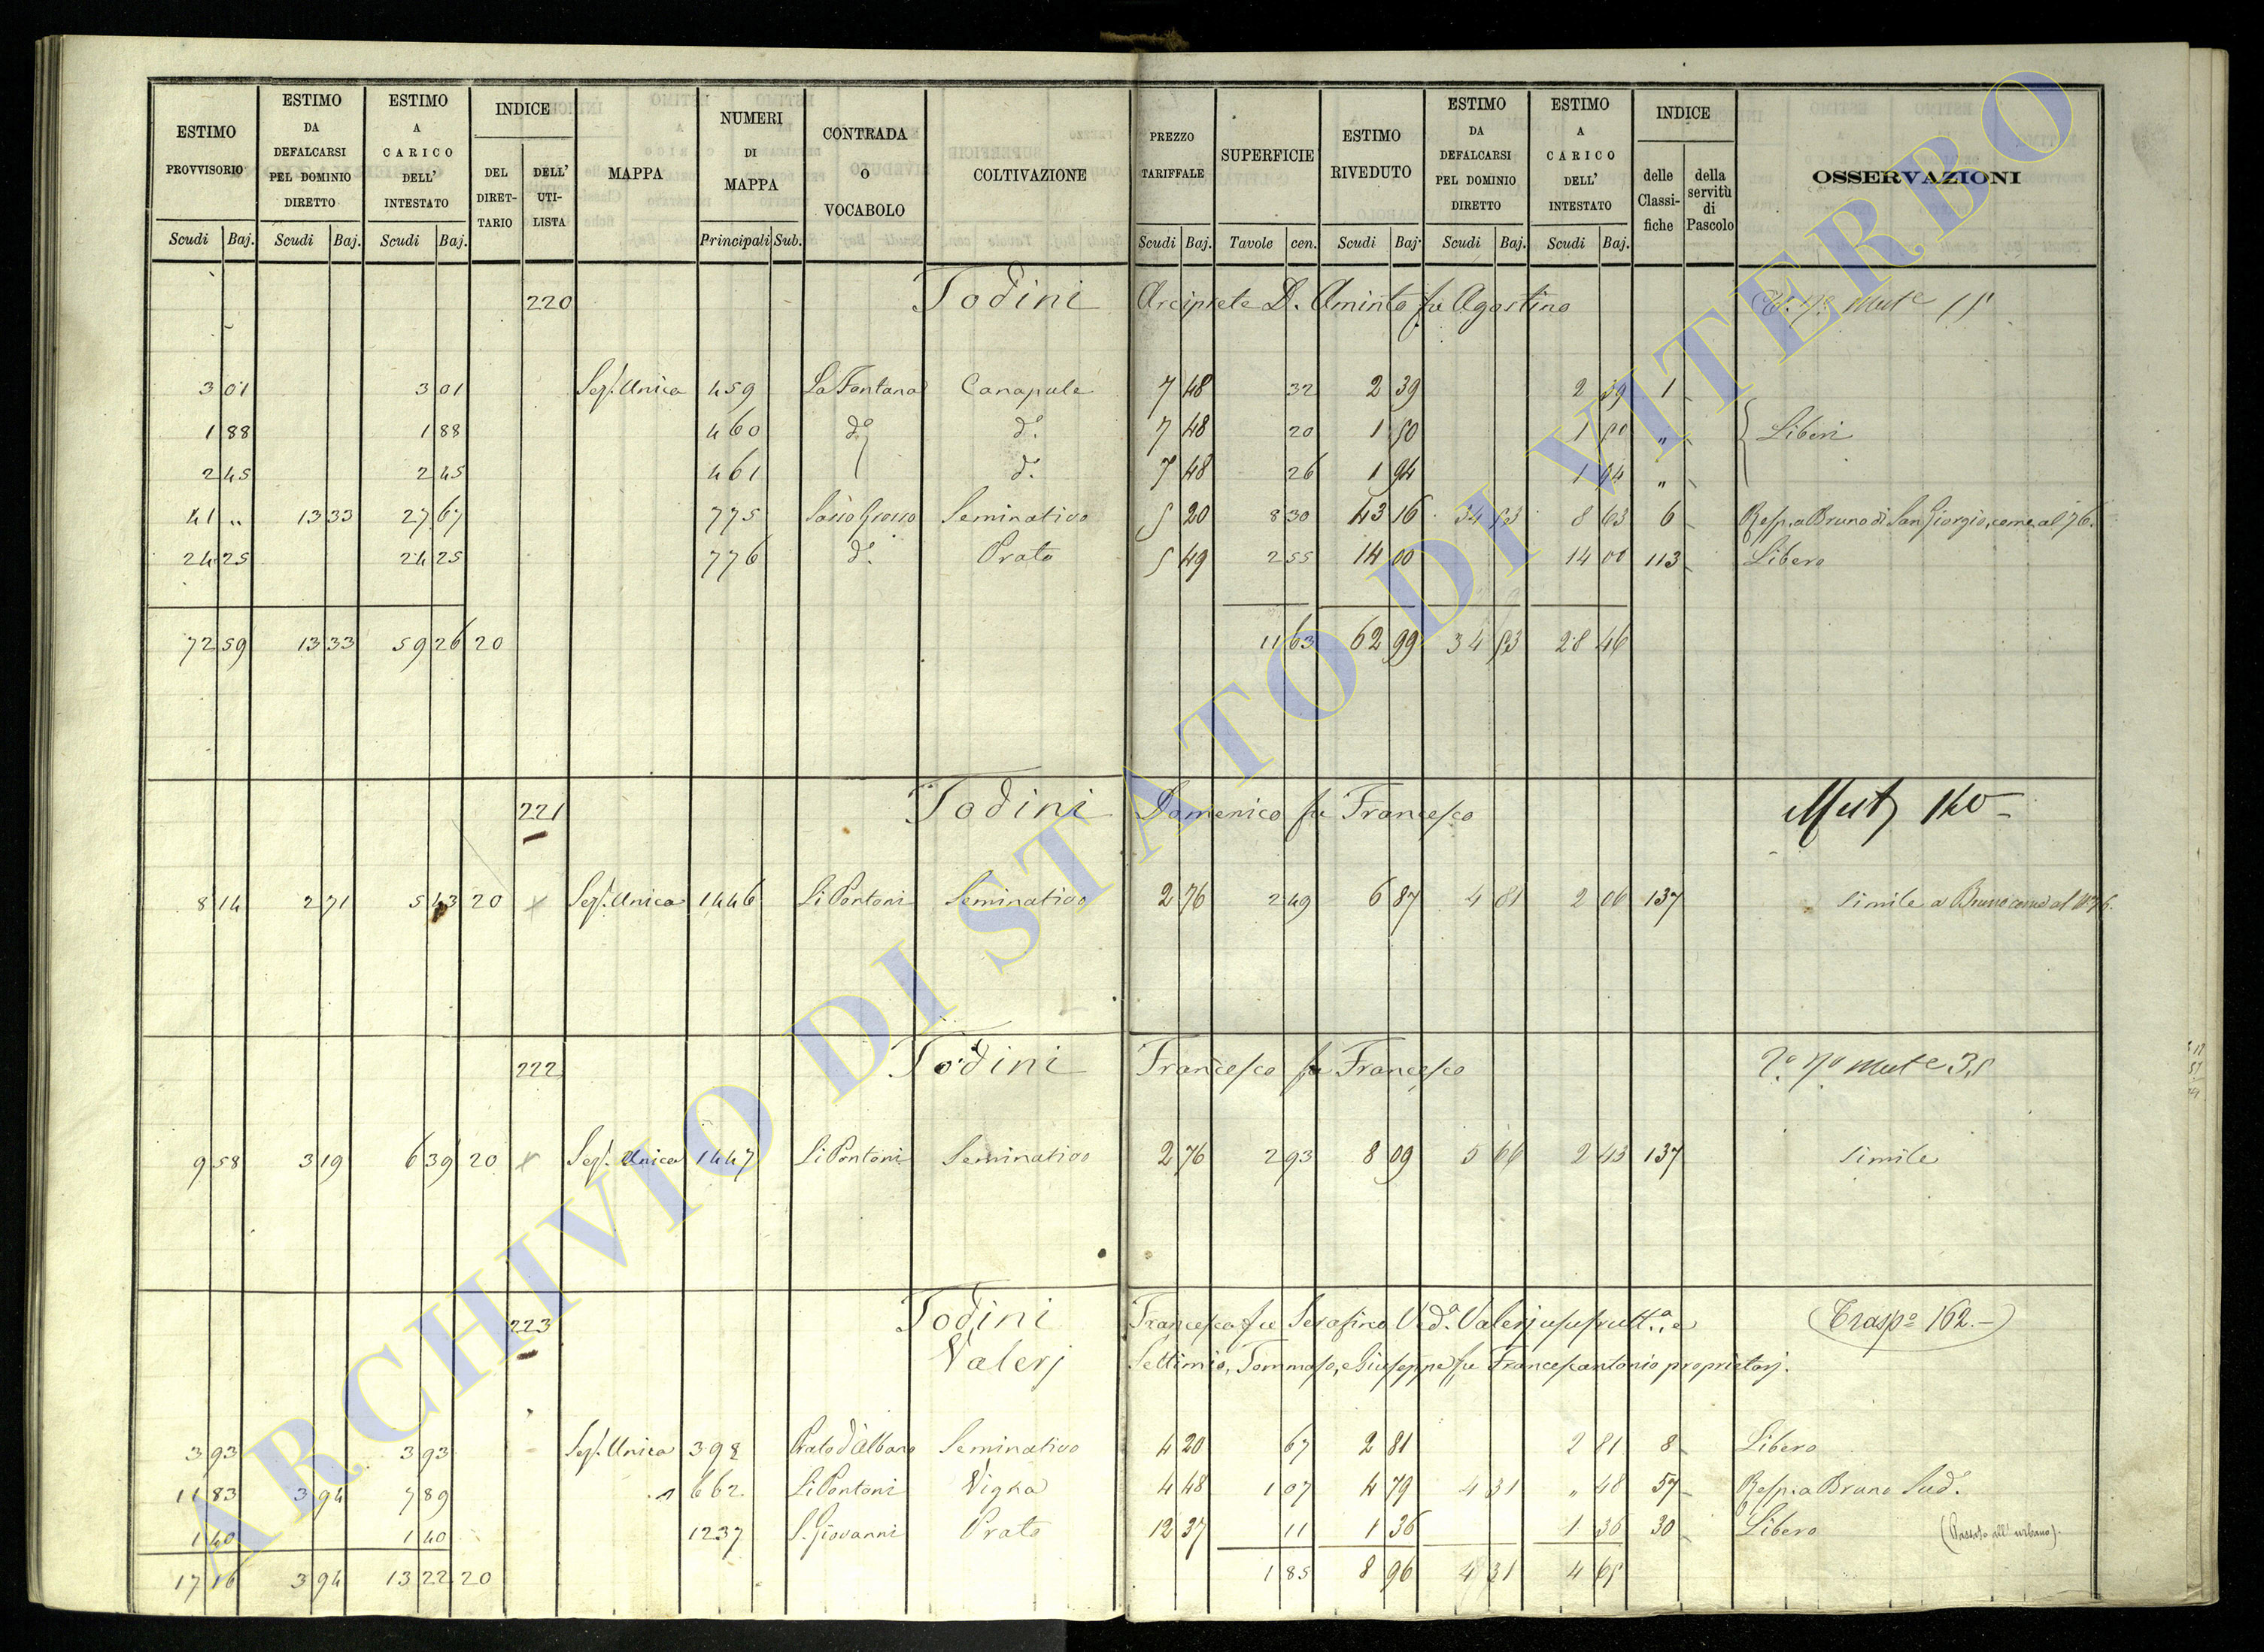 ESTIMO PROVVISORIO | ESTIMO DA DEFALCARSI PEL DOMINIO DIRETTO | ESTIMO A CARICO DELL' INTESTATO | INDICE | MAPPA | NUMERI DI MAPPA | CONTRADA O VOCABOLO | COLTIVAZIONE | PREZZO TARIFFALE | SUPERFICIE | ESTIMO RIVEDUTO | ESTIMO DA DEFALCARSI PEL DOMINIO DIRETTO | ESTIMO A CARICO DELL' INTESTATO | INDICE | OSSERVAZIONI
DEL DIRETTARIO | DELL' UTILISTA | delle Classifiche | della servitù di Pascolo
Scudi Baj. | Scudi Baj. | Scudi Baj. | Principali Sub. | Scudi Baj. | Tavole cen. | Scudi Baj. | Scudi Baj. | Scudi Baj.
220 Todini Arciprete D. Aminto fu Agostino
3 01 | 3 01 | Sez. Unica | 459 | La Fontana | Canapule | 7 48 | 32 | 2 39 | 2 39 | 1
1 88 | 1 88 | 460 | do | do | 7 48 | 20 | 1 50 | 1 50 | „ | Liberi
2 45 | 2 45 | 461 | do | 7 48 | 26 | 1 94 | 1 94 | „
41 „ | 13 33 | 27 67 | 775 | Sasso Grosso | Seminativo | 5 20 | 8 30 | 43 16 | 34 53 | 8 63 | 6 | Resp. a Bruno di San Giorgio, come al 76.
24 25 | 24 25 | 776 | do | Prato | 5 49 | 2 55 | 14 00 | 14 00 | 113 | Libero
72 59 | 13 33 | 59 26 | 20 | 11 63 | 62 99 | 34 53 | 28 46
221 Todini Domenico fu Francesco Mut 140
8 14 | 2 71 | 5 43 | 20 | x | Sez. Unica | 1446 | Li Pontoni | Seminativo | 2 76 | 2 49 | 6 87 | 4 81 | 2 06 | 137 | Simile a Bruno come al No 76.
222 Todini Francesco fu Francesco
9 58 | 3 19 | 6 39 | 20 | x | Sez. Unica | 1447 | Li Pontoni | Seminativo | 2 76 | 2 93 | 8 09 | 5 66 | 2 43 | 137 | Simile
223 Todini Francesca fu Serafino Veda. Valerj usufrutta., e (Traspo 162.—)
Valerj Settimio, Tommaso, e Giuseppe fu Francescantonio proprietarj.
3 93 | 3 93 | Sez. Unica | 398 | Prato d'Albano | Seminativo | 4 20 | 67 | 2 81 | 2 81 | 8 | Libero
11 83 | 3 94 | 7 89 | 662 | Li Pontoni | Vigna | 4 48 | 1 07 | 4 79 | 4 31 | „ 48 | 57 | Resp. a Bruno Sudo.
1 40 | 1 40 | 1237 | S. Giovanni | Prato | 12 37 | 11 | 1 36 | 1 36 | 30 | Libero (Passato all' urbano).
17 16 | 3 94 | 13 22 | 20 | 1 85 | 8 96 | 4 31 | 4 65
ARCHIVIO DI STATO DI VITERBO